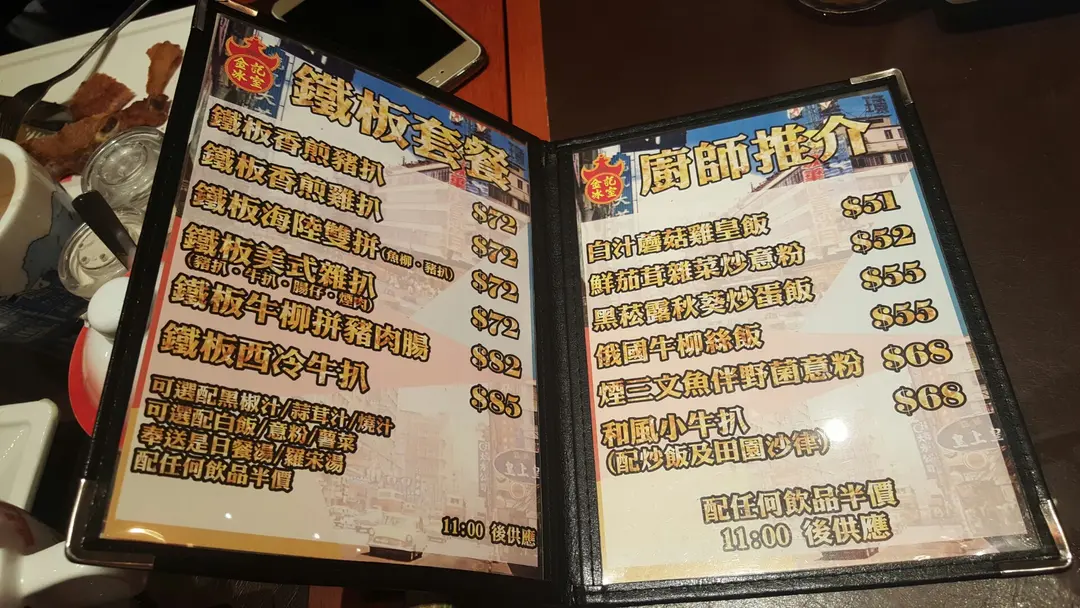 金記冰室
鐵板套餐
鐵板香煎豬扒 $72
鐵板香煎雞扒 $72
鐵板海陸雙拼(魚柳·豬扒) $72
鐵板美式雜扒 $72
(豬扒·牛扒·腸仔·煙肉)
鐵板牛柳拼豬肉腸 $82
鐵板西冷牛扒 $85
可選配黑椒汁/蒜茸汁/燒汁
可選配白飯/意粉/薯菜
奉送是日餐湯/羅宋湯
配任何飲品半價
11:00 後供應
金記冰室
廚師推介
白汁蘑菇雞皇飯 $51
鮮茄茸雜菜炒意粉 $52
黑松露秋葵炒蛋飯 $55
俄國牛柳絲飯 $55
煙三文魚伴野菌意粉 $68
和風小牛扒 $68
(配炒飯及田園沙律)
配任何飲品半價
11:00 後供應